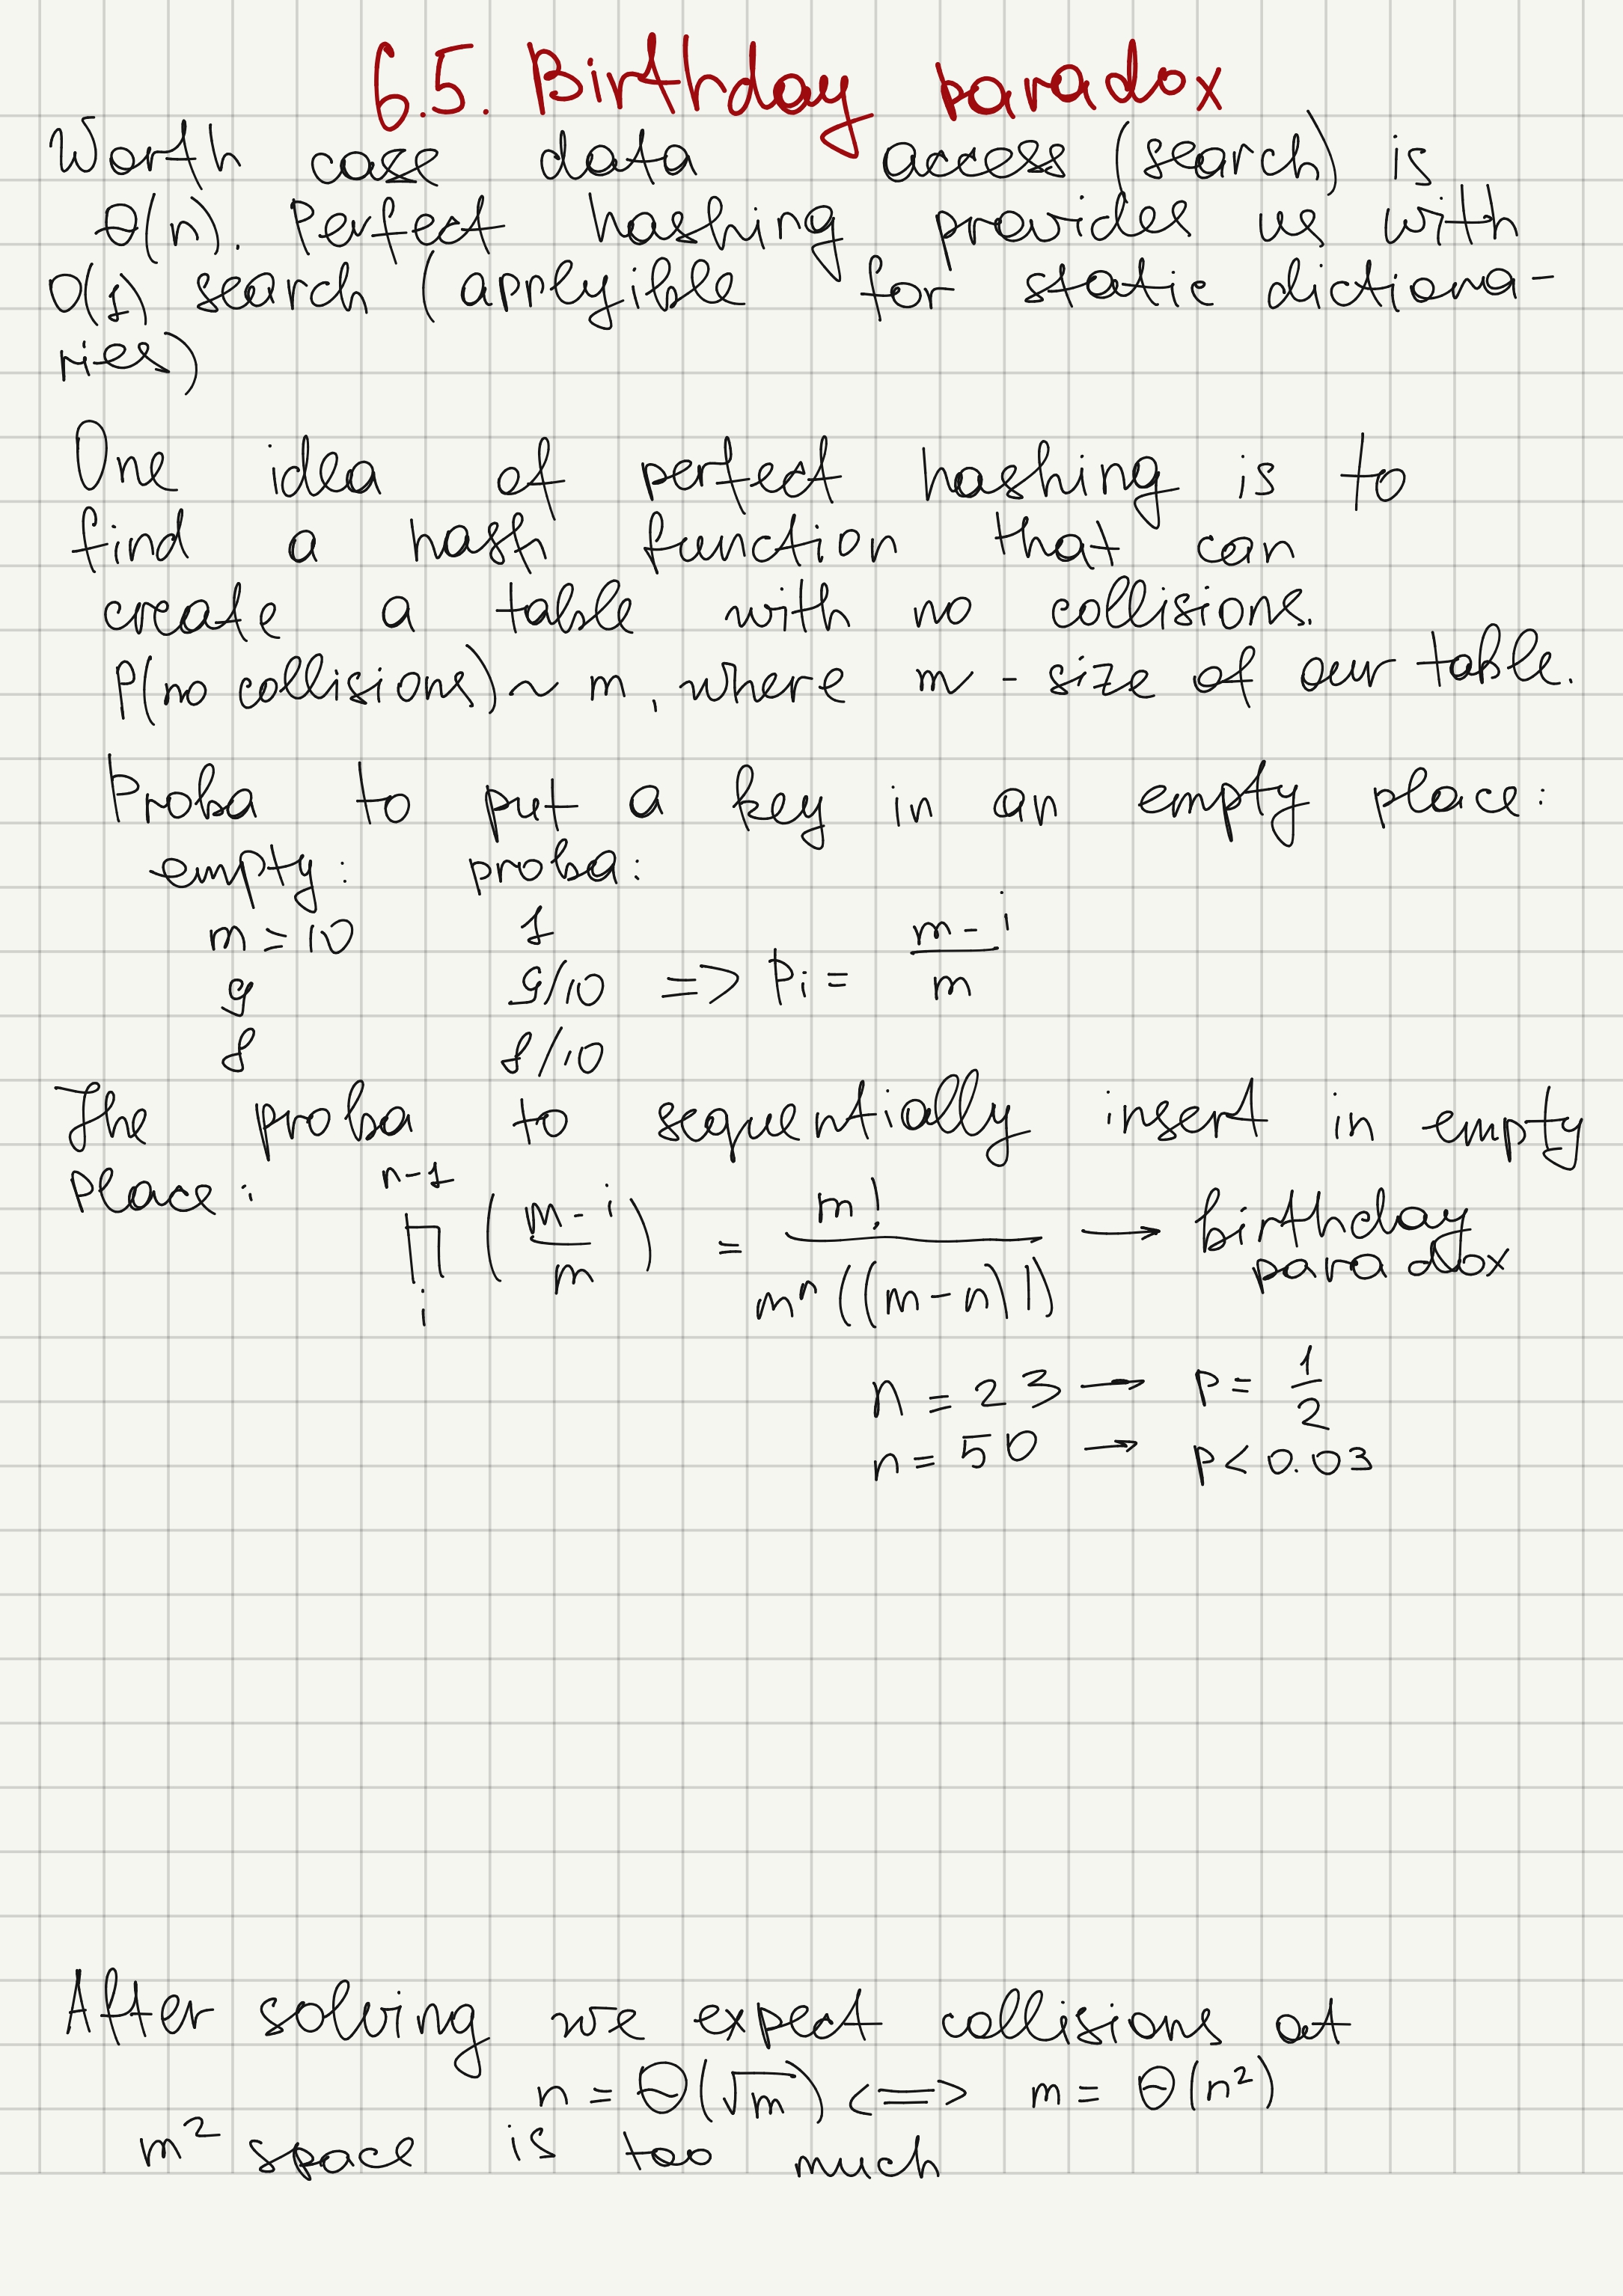 6.5. Birthday paradox
Worth case data access (search) is
θ(n). Perfect hashing provides us with
O(1) search (applyible for static dictiona-
ries)
One idea of perfect hashing is to
find a hash function that can
create a table with no collisions.
P(no collisions) ~ m, where m - size of our table.
Proba to put a key in an empty place:
empty: proba:
m = 10 1
9 9/10 => Pi = (m - i)/m
8 8/10
The proba to sequentially insert in empty
place: ∏_i^{n-1} ((m - i)/m) = m!/(m^n((m-n)!)) → birthday paradox
n = 23 → p = 1/2
n = 50 → p < 0.03
After solving we expect collisions at
n = Θ(√m) <=> m = Θ(n²)
m² space is too much